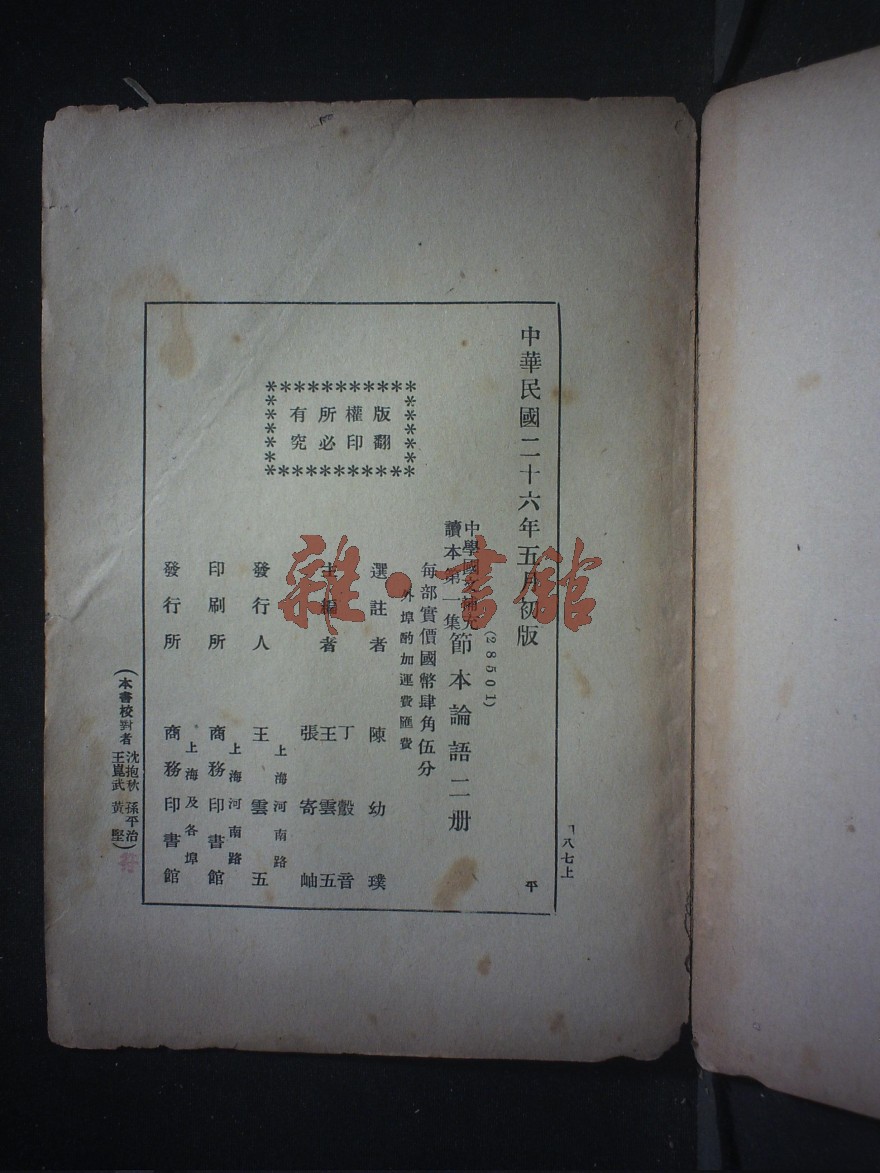 中華民國二十六年五月初版
中學國文補充
讀本第一集
節本論語二册
(28501)
每部實價國幣肆角伍分
外埠酌加運費匯費
版權所有
翻印必究
選註者 陳幼璞
主編者 丁㲄音 王雲五 張寄岫
發行人 王雲五
上海河南路
印刷所 商務印書館
上海河南路
發行所 商務印書館
上海及各埠
(本書校對者 沈抱秋 孫平治 王崑武 黃堅)
八七上
平
雜·書館